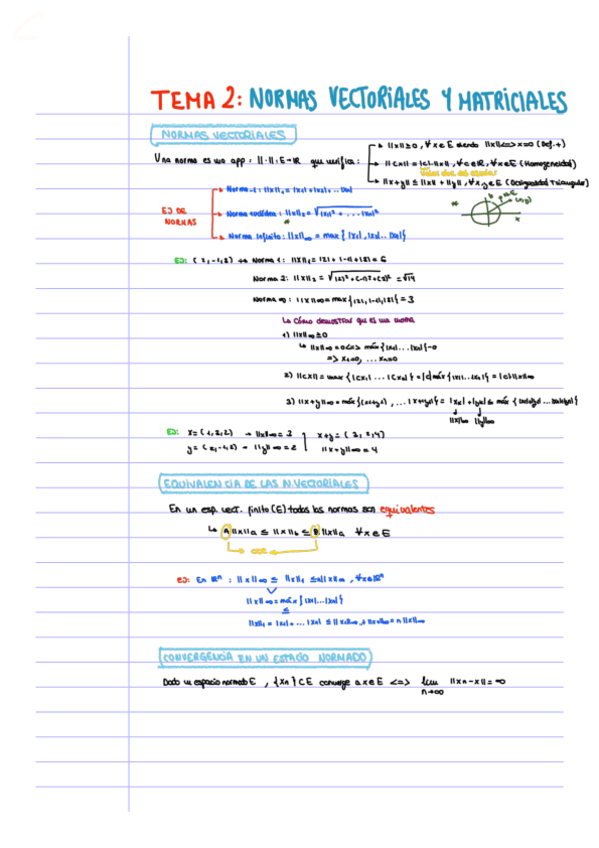 TEMA 2: NORMAS VECTORIALES Y MATRICIALES
NORMAS VECTORIALES
Una norma es una app: ||·||: E→IR que verifica:
||x||≥0, ∀x∈E siendo ||x||<=>x=0 (Def.+)
||cx|| = |c|·||x||, ∀c∈IR, ∀x∈E (Homogeneidad)
||x+y|| ≤ ||x|| + ||y||, ∀x,y∈E (Desigualdad Triangular)
EJ DE NORMAS
Norma-1: ||x||₁ =
Norma euclídea: ||x||₂ =
Norma infinito: ||x||∞ = max{|x₁|, |x₂|...|xn|}
EJ: (2,-1,3) → Norma 1: ||x||₁ = |2| + |-1| + |3| = 6
Norma 2: ||x||₂ = √|2|²+(-1)²+(3)² = √14
Norma ∞: ||x||∞ = max{|2|,|-1|,|3|} = 3
↳ Cómo demostrar que es una norma
1) ||x||∞ ≥0
↳ ||x||∞ = 0 <=> máx{|x₁|...|xn|}=0
=> x₁=0, ... xn=0
2) ||cx|| = max{|cx₁|...|cxn|} = |c|máx{|x₁|...|xn|} = |c|||x||∞
3) ||x+y||∞ = máx
||x||∞ ||y||∞
EJ: x=(1,3,2) → ||x||∞ = 3
x+y=(3,2,4)
y=(2,-1,2) → ||y||∞ = 2
||x+y||∞ = 4
EQUIVALENCIA DE LAS N.VECTORIALES
En un esp. vect. finito (E) todas las normas son equivalentes
↳ A||x||a ≤ ||x||b ≤ B||x||a ∀x∈E
EJ: En IRⁿ: ||x||∞ ≤ ||x||₁ ≤ n||x||∞, ∀x∈IRⁿ
||x||∞ = máx{|x₁|...|xn|}
≤
||x||₁ = |x₁|+...|xn| ≤ ||x||∞ + ||x||∞ = n||x||∞
CONVERGENCIA EN UN ESTACIO NORMADO
Dado un espacio normado E, {Xn}⊂E converge a x∈E <=> lim ||xn-x|| = ∞
n→∞